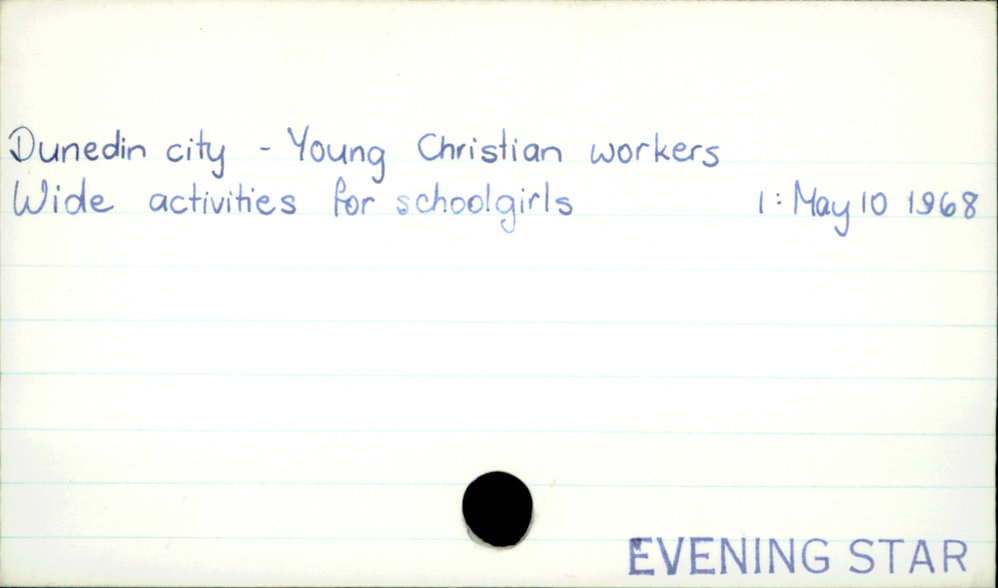 Dunedin city - Young Christian workers
Wide activities for schoolgirls 1: May 10 1968
EVENING STAR